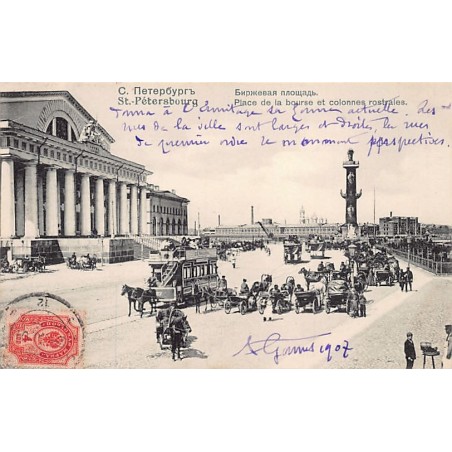 С. Петербургъ
St.-Pétersbourg
Биржевая площадь.
Place de la bourse et colonnes rostrales.
à l'Ermitage sa forme actuelle. Les
rues de la ville sont larges et droites, les rues
de premier ordre se nomment perspectives.
1907
12